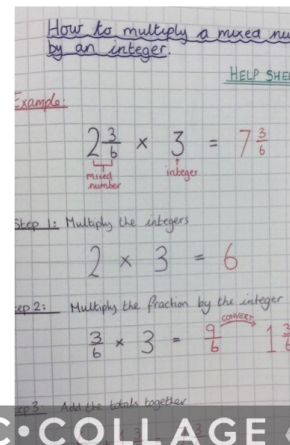 How to multiply a mixed nu
by an integer.
HELP SHE
Example:
2 3/6 × 3 = 7 3/6
mixed number
integer
Step 1: Multiply the integers
2 × 3 = 6
ep 2: Multiply the fraction by the integer
3/6 × 3 = 9/6 CONVERT 1 3/
ep 3: Add the totals together
C•COLLAGE